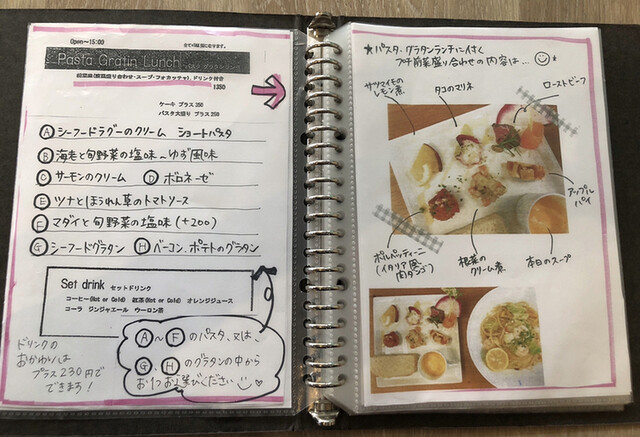 Open~15:00
全て+税別になります。
Pasta Gratin Lunch パスタ グラタンランチ
前菜盛(前菜盛り合わせ・スープ・フォカッチャ)、ドリンク付き
1350
ケーキ プラス 350
パスタ大盛り プラス 250
Ⓐ シーフードラグーのクリーム ショートパスタ
Ⓑ 海老と旬野菜の塩味〜ゆず風味
Ⓒ サーモンのクリーム Ⓓ ボロネーゼ
Ⓔ ツナとほうれん草のトマトソース
Ⓕ マダイと旬野菜の塩味(+200)
Ⓖ シーフードグラタン Ⓗ ベーコン、ポテトのグラタン
Set drink セットドリンク
コーヒー(Hot or Cold) 紅茶(Hot or Cold) オレンジジュース
コーラ ジンジャエール ウーロン茶
ドリンクの
おかわりは
プラス230円で
できます!
Ⓐ〜Ⓕのパスタ、又は、
Ⓖ、Ⓗのグラタンの中から
お1つお選びください
★パスタ、グラタンランチに付く
プチ前菜盛り合わせの内容は…
サツマイモの
レモン煮
タコのマリネ
ローストビーフ
アップル
パイ
ポルペッティーニ
(イタリア風
肉ダンゴ)
根菜の
クリーム煮
本日のスープ